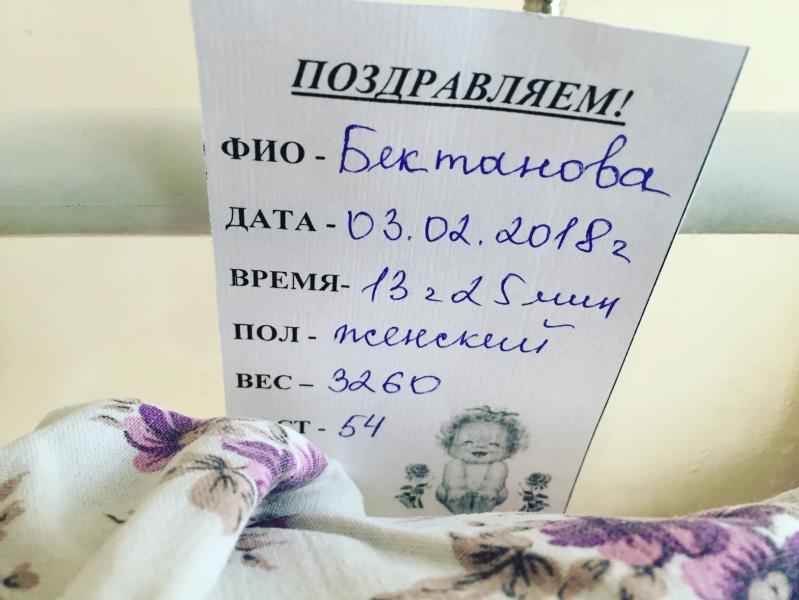 ПОЗДРАВЛЯЕМ!
ФИО - Бектанова
ДАТА - 03.02.2018г
ВРЕМЯ- 13 ч 25 мин
ПОЛ - женский
ВЕС – 3260
СТ - 54